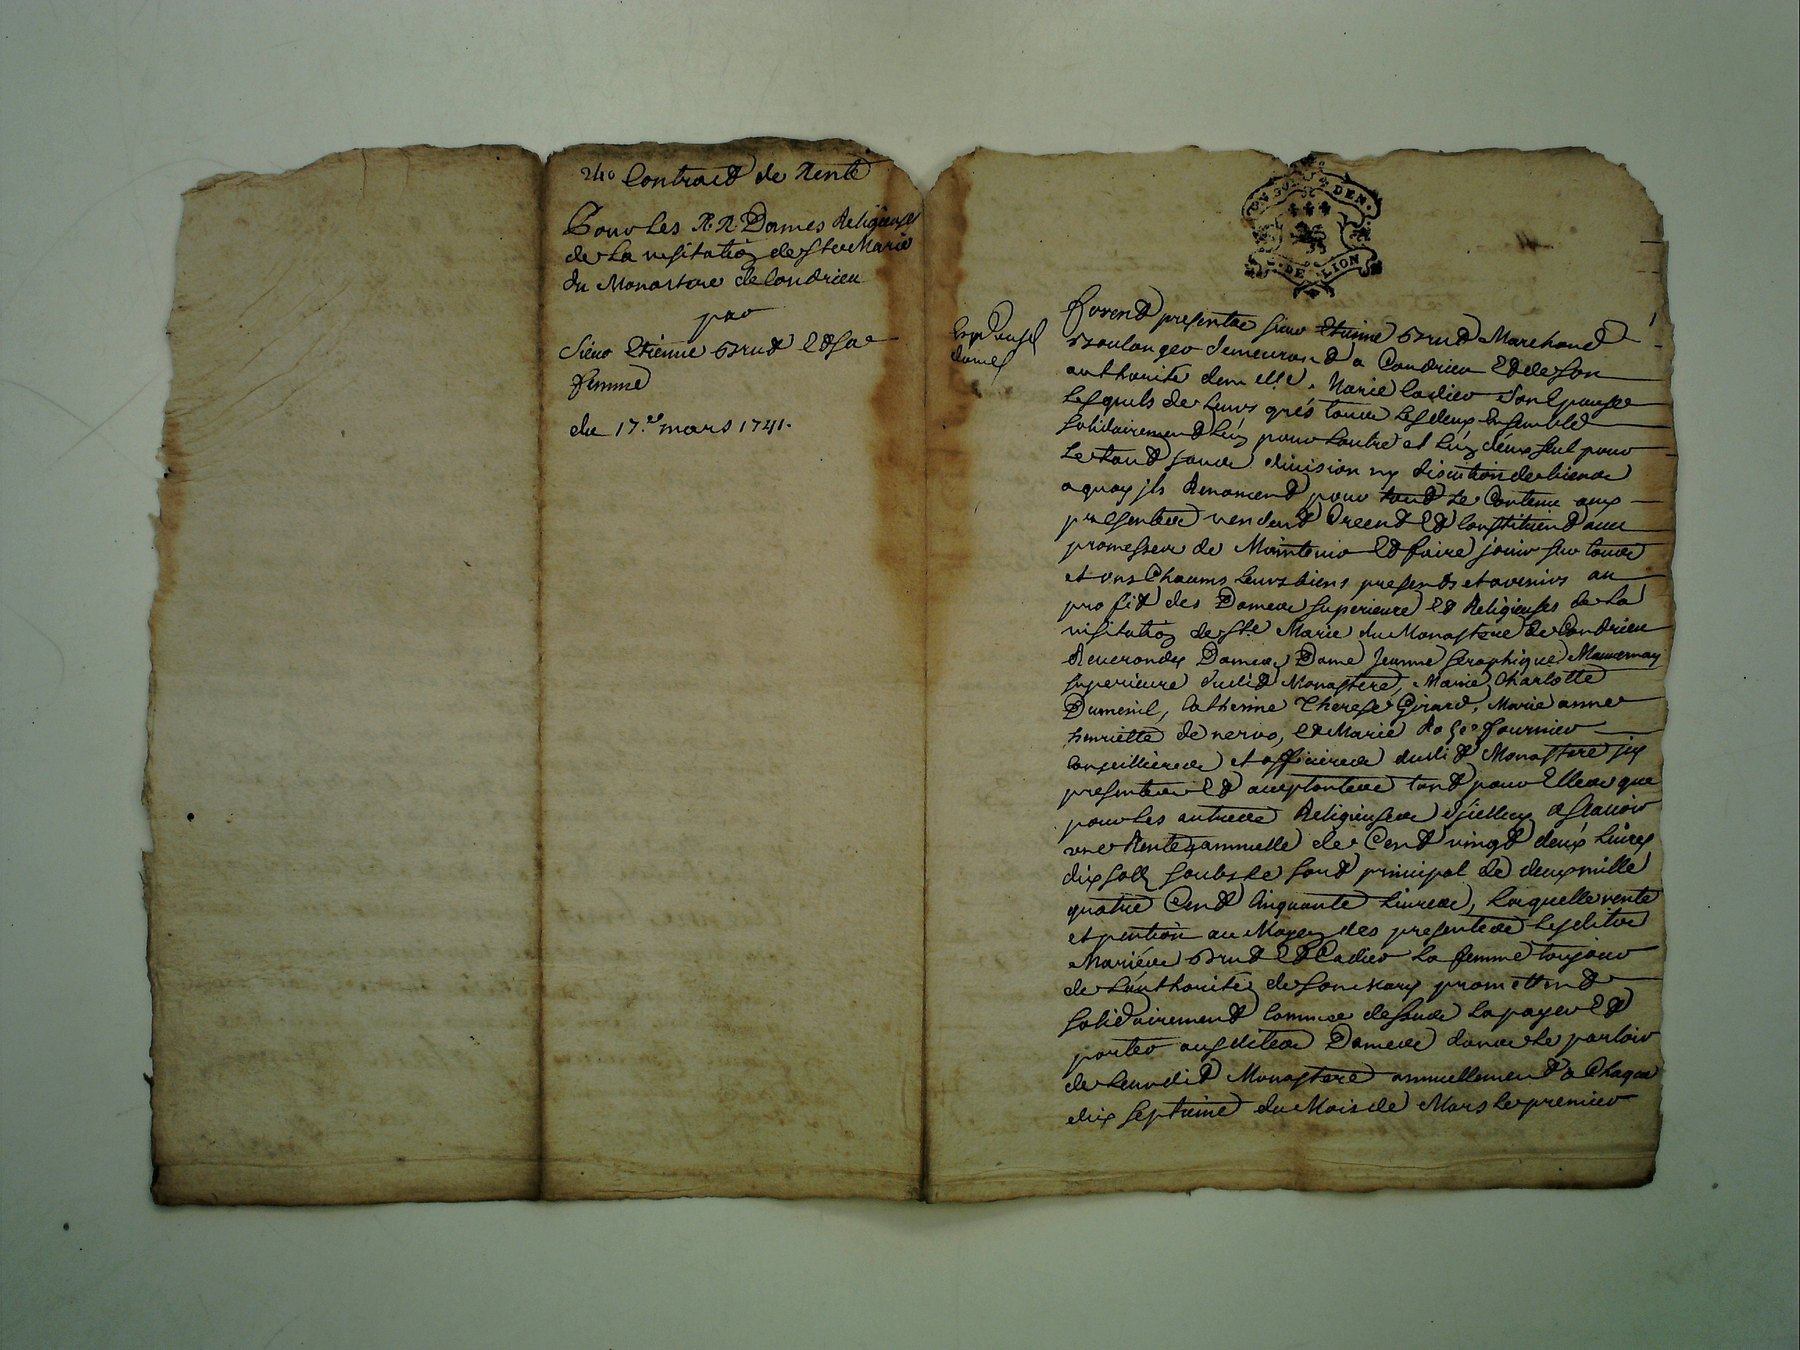 240 Contract de Rente
Pour Les R.R. Dames Religieuses
de La visitation de Ste Marie
du Monastere de Condrieu
par
Sieur Etienne Brud Et Sa
femme
du 17.e mars 1741.
DE LION
Furend presentes sieur Etienne Brud Marchand
Boulanger demeurand a Condrieu Et de Son
authorité demelle. Marie Cadier Son Epouse
Lesquels de Leurs grés tous Les deux Ensemble
solidairement Lun pour Lautre et Lun deux seul pour
Le tout sans division ny discution de biens
a quoy ils Renoncend pour Le Contenu aux
presentes vendend Creend Et Constituend avec
promesses de Maintenir Et faire jouir sur tous
et uns Chacuns Leurs biens presends et avenirs au
profid des Dames superieure Et Religieuses de La
visitation de Ste Marie du Monastere de Condrieu
Reverendes Dames Dame Jeanne Seraphique
superieure dudid Monastere, Marie Charlotte
Dumenil, Catherine Therese Girard, Marie anne
henriette de nervo, Et Marie Rose fournier
Conseillieres et officieres dudid Monastere icy
presentes Et acceptantes tand pour Elles que
pour Les autres Religieuses d'icelluy a scavoir
une Rente annuelle de Cend vingd deux Livres
dix sols soubs Le sord principal de deux mille
quatre Cend Cinquante Livres, Laquelle rente
et pention au Moyen des presentes Lesdits
Mariés Brud Et Cadier La femme toujours
de Lauthorité de son mary promettend
solidairement Comme dessus La payer Et
porter ausdites Dames dans Le parloir
de Leurdid Monastere annuellement a Chaque
dix septieme du Mois de Mars Le premier